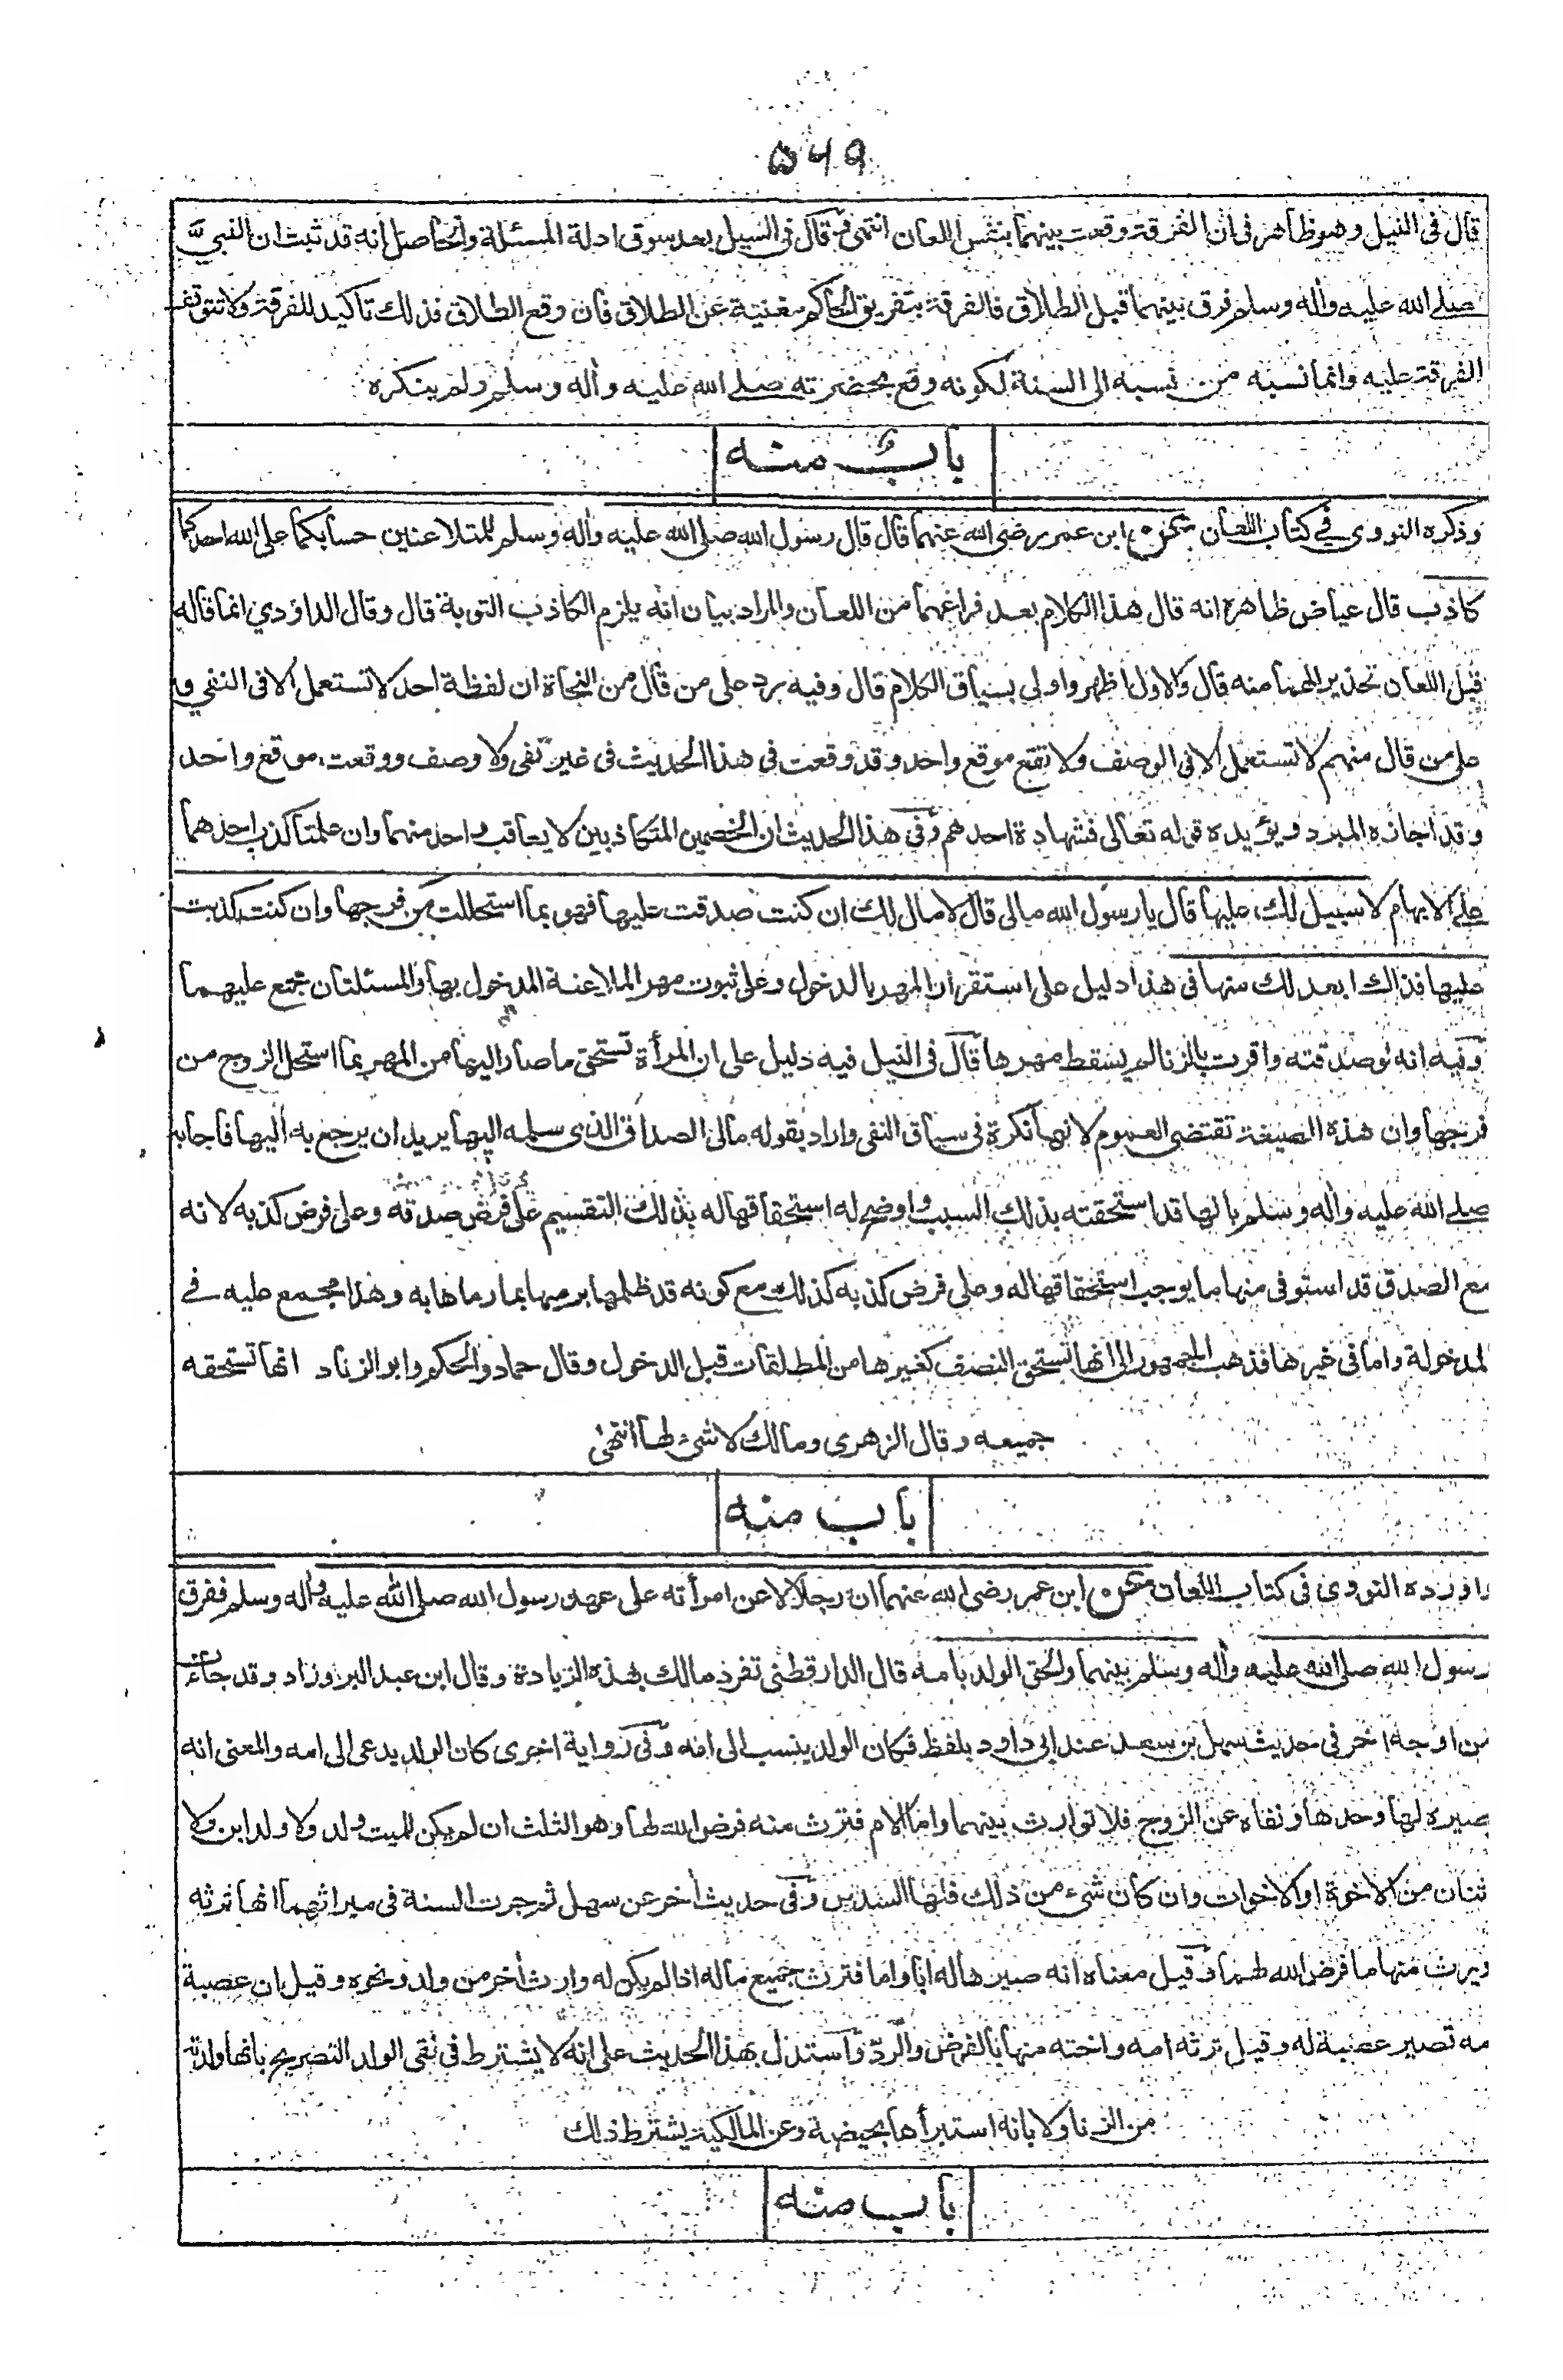 ۵۶۹
قال فى النيل وهو ظاهر فى ان الفرقة وقعت بينهما بنفس اللعان انتهى ثم قال فى السيل بعد سوق ادلة المسئلة والحاصل انه قد ثبت ان النبي
صلے الله عليه واله وسلم فرق بينهما قبل الطلاق فالفرقة بتفريق الحاكم مغنية عن الطلاق فان وقع الطلاق فذلك تاكيد للفرقة ولا تتوقف
الفرقة عليه وانما نسبه من نسبه الى السنة لكونه وقع بحضرته صلے الله عليه واله وسلم ولم ينكره
باب منه
وذكره النووى فى كتاب اللعان عن ابن عمر رضى الله عنهما قال قال رسول الله صلى الله عليه واله وسلم للمتلاعنين حسابكما على الله احدكما
كاذب قال عياض ظاهره انه قال هذا الكلام بعد فراغهما من اللعان والمراد بيان انه يلزم الكاذب التوبة قال وقال الداؤدي انما قاله
قبل اللعان تحذيرا لهما منه قال والاول اظهر واولى بسياق الكلام قال وفيه رد على من قال من النحاة ان لفظة احد لا تستعمل الا فى النفي و
على من قال منهم لا تستعمل الا فى الوصف ولا تقع موقع واحد وقد وقعت فى هذا الحديث فى غير نفى ولا وصف ووقعت موقع واحد
وقد اجازه المبرد ويؤيده قوله تعالى فشهادة احدهم وفى هذا الحديث ان الخصمين المتكاذبين لا يعاقب واحد منهما وان علمنا كذب احدهما
على الابهام لا سبيل لك عليها قال يا رسول الله مالى قال لا مال لك ان كنت صدقت عليها فهو بما استحللت من فرجها وان كنت كذبت
عليها فذاك ابعد لك منها فى هذا دليل على استقرار المهر بالدخول وعلى ثبوت مهر الملاعنة المدخول بها والمسئلتان مجمع عليهما
وفيه انه لو صدقته واقرت بالزنا لم يسقط مهرها قال فى النيل فيه دليل على ان المرأة تستحق ما صار اليها من المهر بما استحل الزوج من
فرجها وان هذه الصيغة تقتضى العموم لانها نكرة فى سياق النفى واراد بقوله مالى الصداق الذى سلمه اليها يريد ان يرجع به اليها فاجابه
صلے الله عليه واله وسلم بانها قد استحقته بذلك السبب واوضح له استحقاقها له بذلك التقسيم على فرض صدقه وعلى فرض كذبه لانه
مع الصدق قد استوفى منها ما يوجب استحقاقها له وعلى فرض كذبه كذلك مع كونه قد ظلمها برميها بما رماها به وهذا مجمع عليه فے
المدخولة واما فى غيرها فذهب الجمهور الى انها تستحق النصف كغيرها من المطلقات قبل الدخول وقال حماد والحكم وابو الزناد انها تستحقه
جميعه وقال الزهرى ومالك لا شىء لها انتهى
باب منه
واورده النووى فى كتاب اللعان عن ابن عمر رضى الله عنهما ان رجلا لاعن امرأته على عهد رسول الله صلى الله عليه واله وسلم ففرق
رسول الله صلى الله عليه واله وسلم بينهما والحق الولد بامه قال الدارقطنى تفرد مالك بهذه الزيادة وقال ابن عبد البر وزاد وقد جاءت
من اوجه اخر فى حديث سهل بن سعد عند ابى داود بلفظ فكان الولد ينسب الى امه وفى رواية اخرى كان الولد يدعى الى امه والمعنى انه
صيره لها وحدها ونفاه عن الزوج فلا توارث بينهما واما الام فترث منه فرض الله لها وهو الثلث ان لم يكن للميت ولد ولا ولد ابن ولا
اثنان من الاخوة او الاخوات وان كان شىء من ذلك فلها السدس وفى حديث اخر عن سهل ثم جرت السنة فى ميراثهما انها ترثه
ويرث منها ما فرض الله لهما وقيل معناه انه صيرها له ابا واما فترث جميع ماله اذا لم يكن له وارث اخر من ولد ونحوه وقيل ان عصبة
امه تصير عصبة له وقيل ترثه امه واخته منها بالفرض والرد واستدل بهذا الحديث على انه لا يشترط فى نفى الولد التصريح بانها ولدته
من الزنا ولا بانه استبرأها بحيضة وعن المالكية يشترط ذلك
باب منه